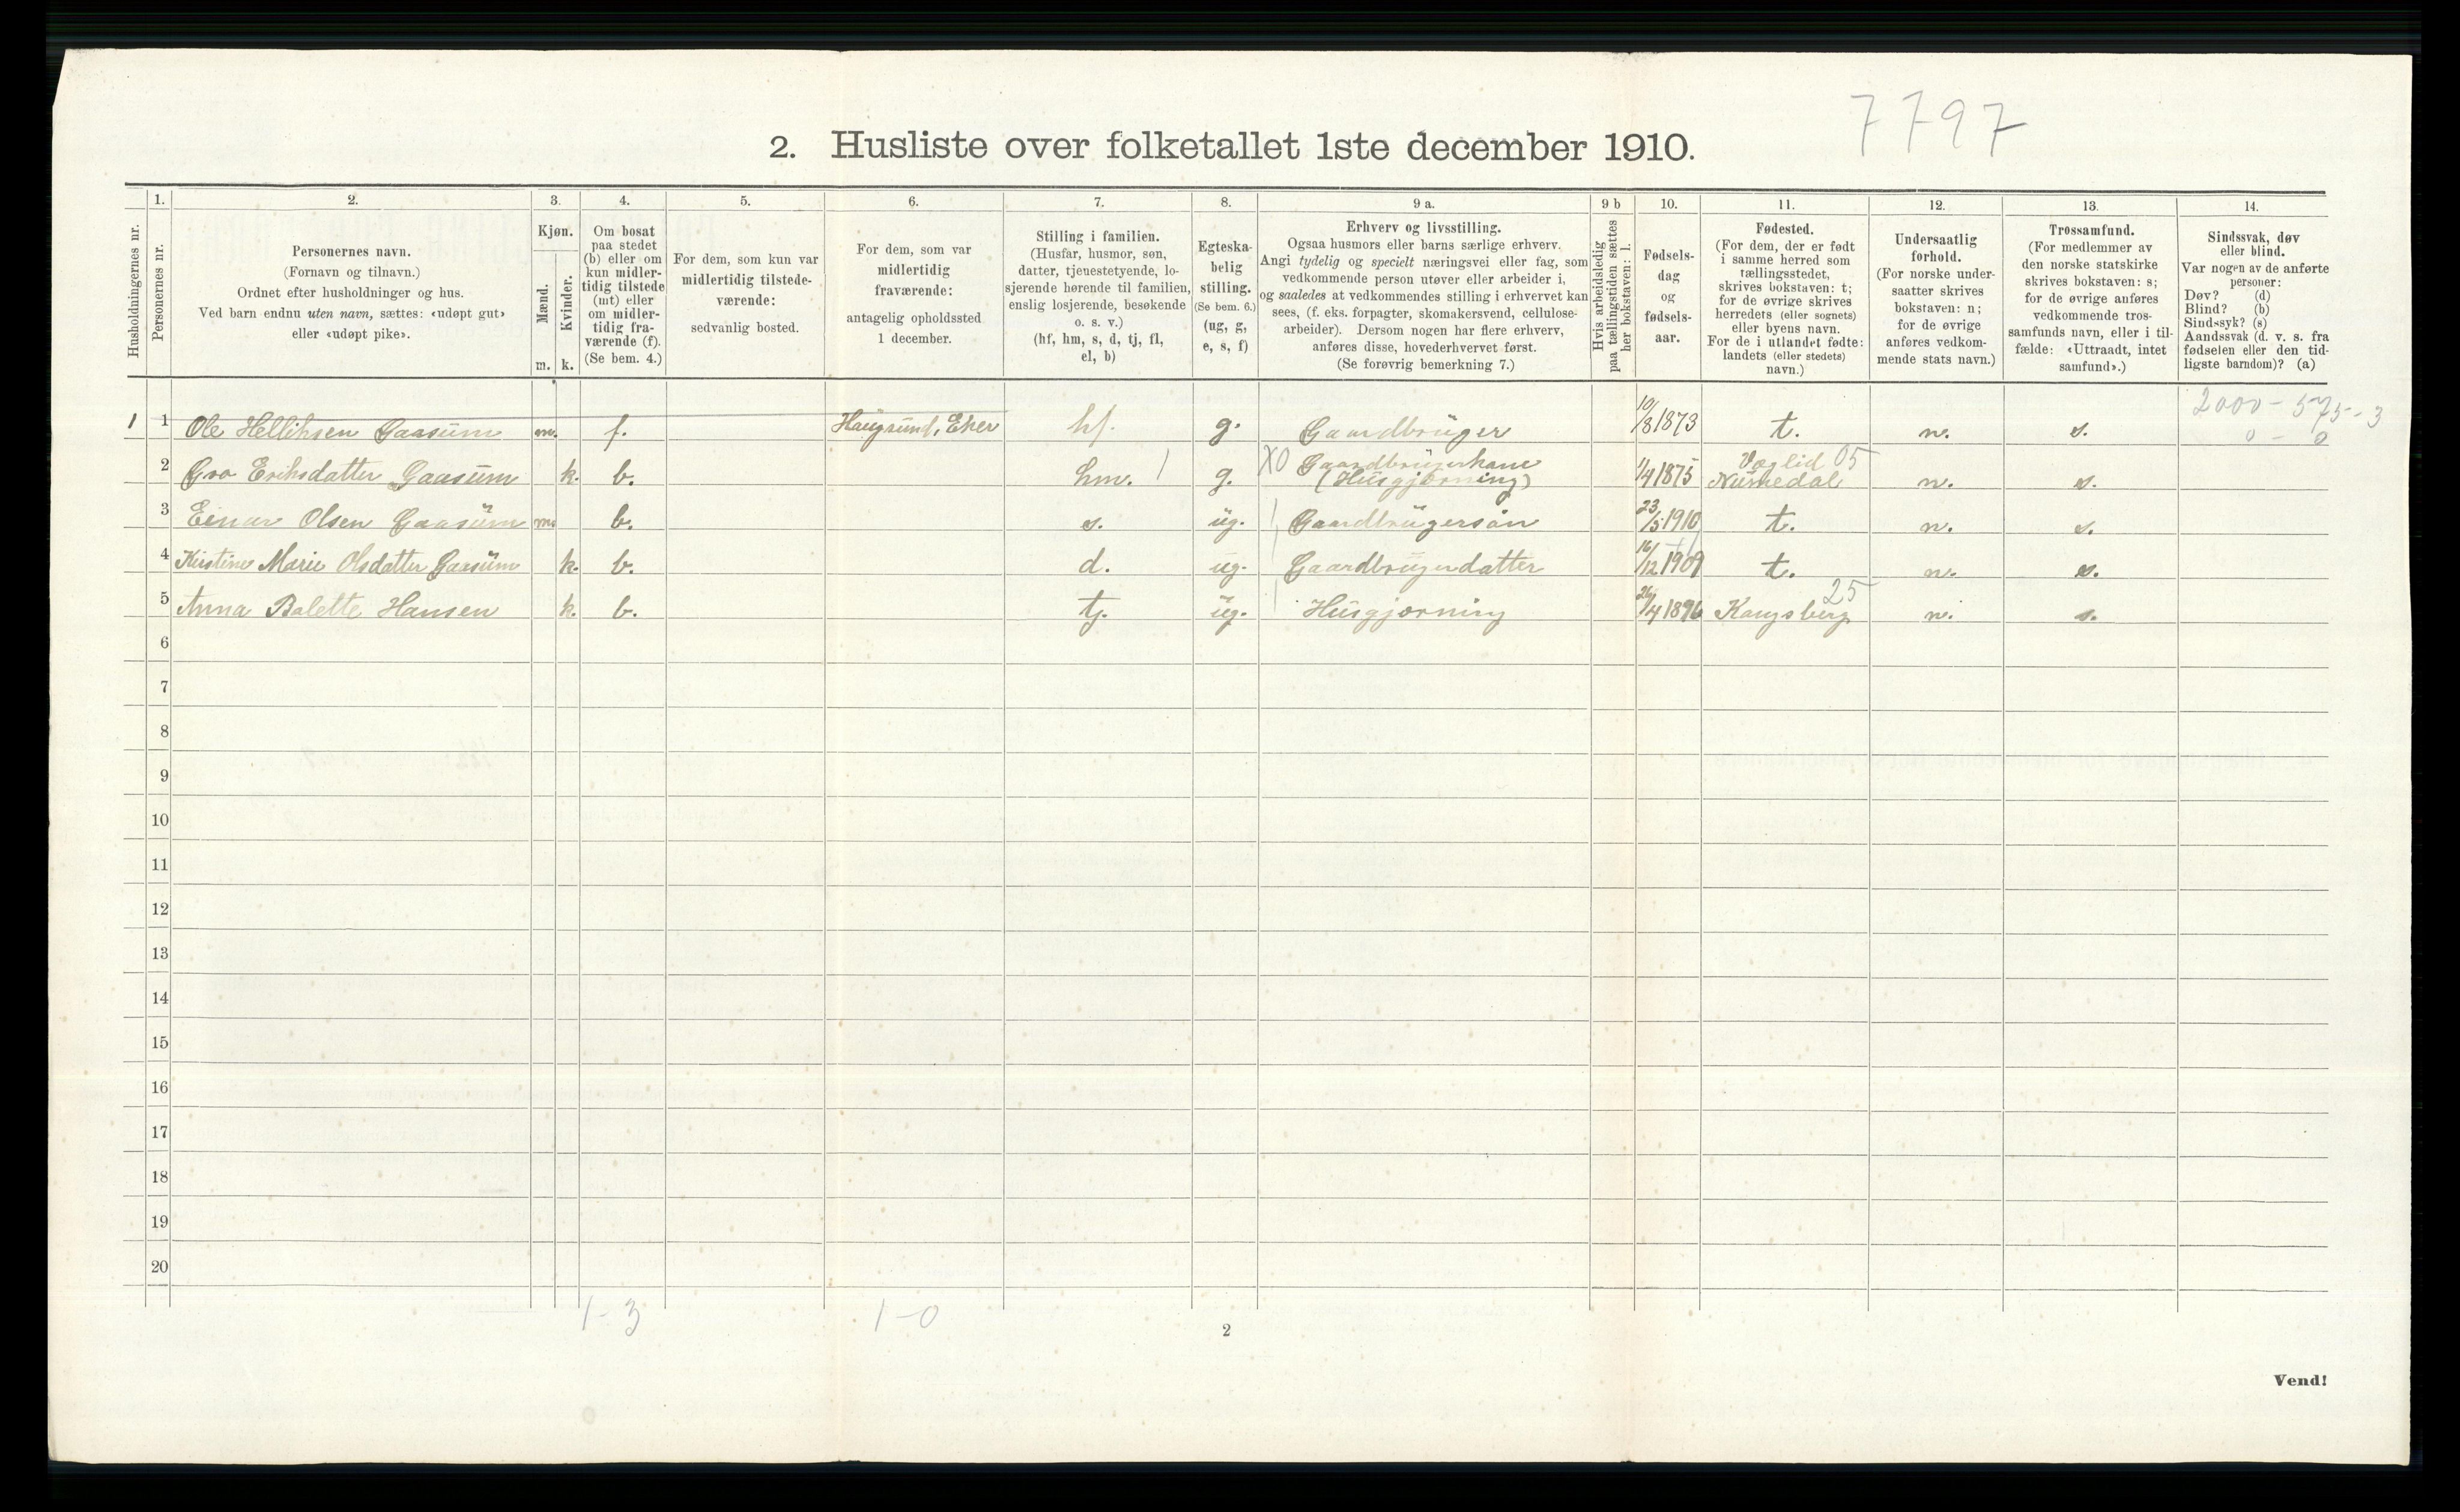 7797
2. Husliste over folketallet 1ste december 1910.
Husholdningernes nr.
1.
Personernes nr.
2.
Personernes navn.
(Fornavn og tilnavn.)
Ordnet efter husholdninger og hus.
Ved barn endnu uten navn, sættes: «udøpt gut»
eller «udøpt pike».
3.
Kjøn.
Mænd.
Kvinder.
m. k.
4.
Om bosat
paa stedet
(b) eller om
kun midler-
tidig tilstede
(mt) eller
om midler-
tidig fra-
værende (f).
(Se bem. 4.)
5.
For dem, som kun var
midlertidig tilstede-
værende:
sedvanlig bosted.
6.
For dem, som var
midlertidig
fraværende:
antagelig opholdssted
1 december.
7.
Stilling i familien.
(Husfar, husmor, søn,
datter, tjenestetyende, lo-
sjerende hørende til familien,
enslig losjerende, besøkende
o. s. v.)
(hf, hm, s, d, tj, fl,
el, b)
8.
Egteska-
belig
stilling.
(Se bem. 6.)
(ug, g,
e, s, f)
9 a.
Erhverv og livsstilling.
Ogsaa husmors eller barns særlige erhverv.
Angi tydelig og specielt næringsvei eller fag, som
vedkommende person utøver eller arbeider i,
og saaledes at vedkommendes stilling i erhvervet kan
sees, (f. eks. forpagter, skomakersvend, cellulose-
arbeider). Dersom nogen har flere erhverv,
anføres disse, hovederhvervet først.
(Se forøvrig bemerkning 7.)
9 b
Hvis arbeidsledig
paa tællingstiden sættes
her bokstaven: l.
10.
Fødsels-
dag
og
fødsels-
aar.
11.
Fødested.
(For dem, der er født
i samme herred som
tællingsstedet,
skrives bokstaven: t;
for de øvrige skrives
herredets (eller sognets)
eller byens navn.
For de i utlandet fødte:
landets (eller stedets)
navn.)
12.
Undersaatlig
forhold.
(For norske under-
saatter skrives
bokstaven: n;
for de øvrige
anføres vedkom-
mende stats navn.)
13.
Trossamfund.
(For medlemmer av
den norske statskirke
skrives bokstaven: s;
for de øvrige anføres
vedkommende tros-
samfunds navn, eller i til-
fælde: «Uttraadt, intet
samfund».)
14.
Sindssvak, døv
eller blind.
Var nogen av de anførte
personer:
Døv? (d)
Blind? (b)
Sindssyk? (s)
Aandssvak (d. v. s. fra
fødselen eller den tid-
ligste barndom)? (a)
2000 - 575 - 3
0 - 0
1 1 Ole Hellihsen Gaasum m. f. Haugsund, Eker hf. g. Gaardbruger 10/8 1873 t. n. s.
2 Gro Eriksdatter Gaasum k. b. hm. 1 g. X0 Gaardbrugerkone (Husgjørning) 1/4 1875 Veglid 05 Numedal n. s.
3 Einar Olsen Gaasum m. b. s. ug. Gaardbrugersøn 23/5 1910 t. n. s.
4 Kirstine Marie Olsdatter Gaasum k. b. d. ug. Gaardbrugerdatter 16/12 1909 t. n. s.
5 Anna Balette Hansen k. b. tj. ug. Husgjørning 26/4 1896 Kongsberg 25 n. s.
6
7
8
9
10
11
12
13
14
15
16
17
18
19
20
1-3
1-0
2
Vend!